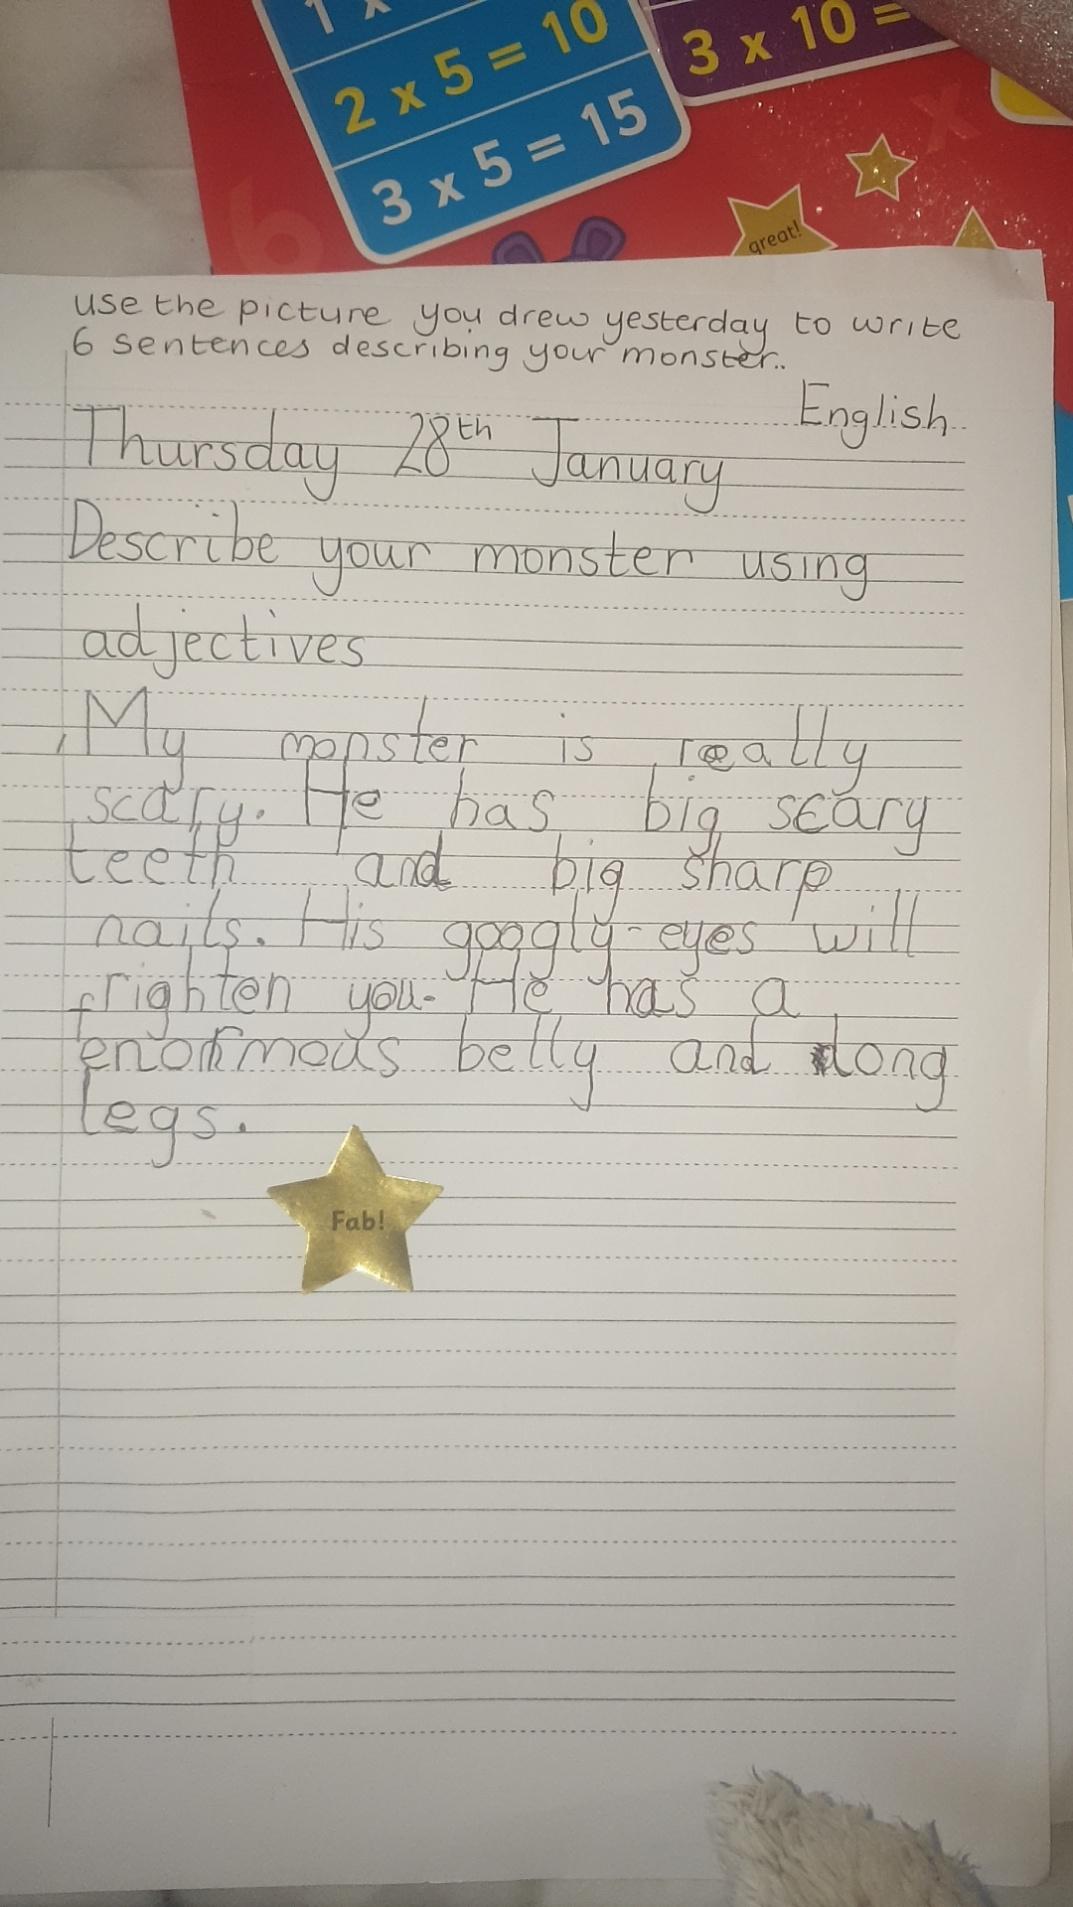 1 x
2 x 5 = 10
3 x 5 = 15
3 x 10 =
x
6
great!
use the picture you drew yesterday to write
6 sentences describing your monster..
English
Thursday 28th January
Describe your monster using
adjectives
My monster is really
scary. He has big scary
teeth and big sharp
nails. His googly-eyes will
frighten you. He has a
enormous belly and long
legs.
Fab!